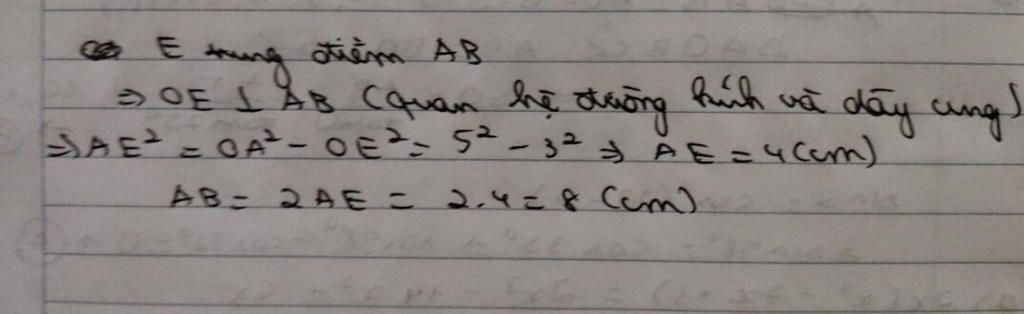 E trung điểm AB
⇒ OE ⊥ AB (Quan hệ đường kính và dây cung)
⇒ AE² = OA² - OE² = 5² - 3² ⇒ AE = 4 (cm)
AB = 2AE = 2.4 = 8 (cm)